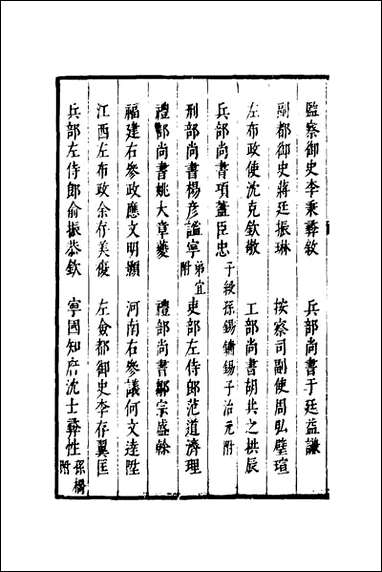 監察御史李秉彝敘　兵部尚書于廷益謙
副都御史蔣廷振琳　按察司副使周弘璧瑄
左布政使沈克欽敬　工部尚書胡共之拱辰
兵部尚書項藎臣忠子綬孫錫鏞錫子治元附
刑部尚書楊彥謐寧弟宜附　吏部左侍郎范道濟理
禮部尚書姚大章夔　禮部尚書鄒宗盛幹
福建右參政應文明顥　河南右參議何文逵陞
江西左布政余存美俊　左僉都御史李存翼匡
兵部左侍郎俞振恭欽　寧國知府沈士彝性孫橋附